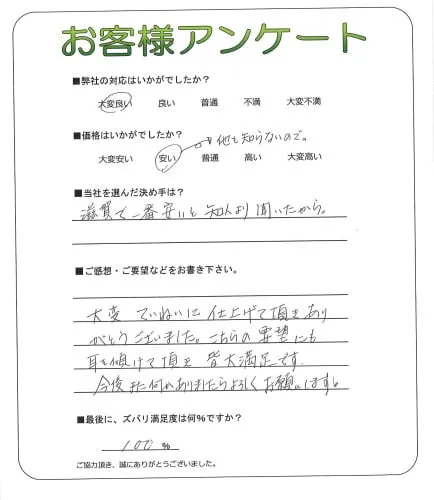 お客様アンケート
■弊社の対応はいかがでしたか?
大変良い 良い 普通 不満 大変不満
■価格はいかがでしたか?
他を知らないので。
大変安い 安い 普通 高い 大変高い
■当社を選んだ決め手は?
滋賀で一番安いと知人より聞いたから。
■ご感想・ご要望などをお書き下さい。
大変 ていねいに 仕上げて頂きあり
がとうございました。こちらの要望にも
耳を傾けて頂き 皆大満足です。
今後また何かありましたらよろしくお願いします。
■最後に、ズバリ満足度は何%ですか?
100 %
ご協力頂き、誠にありがとうございました。